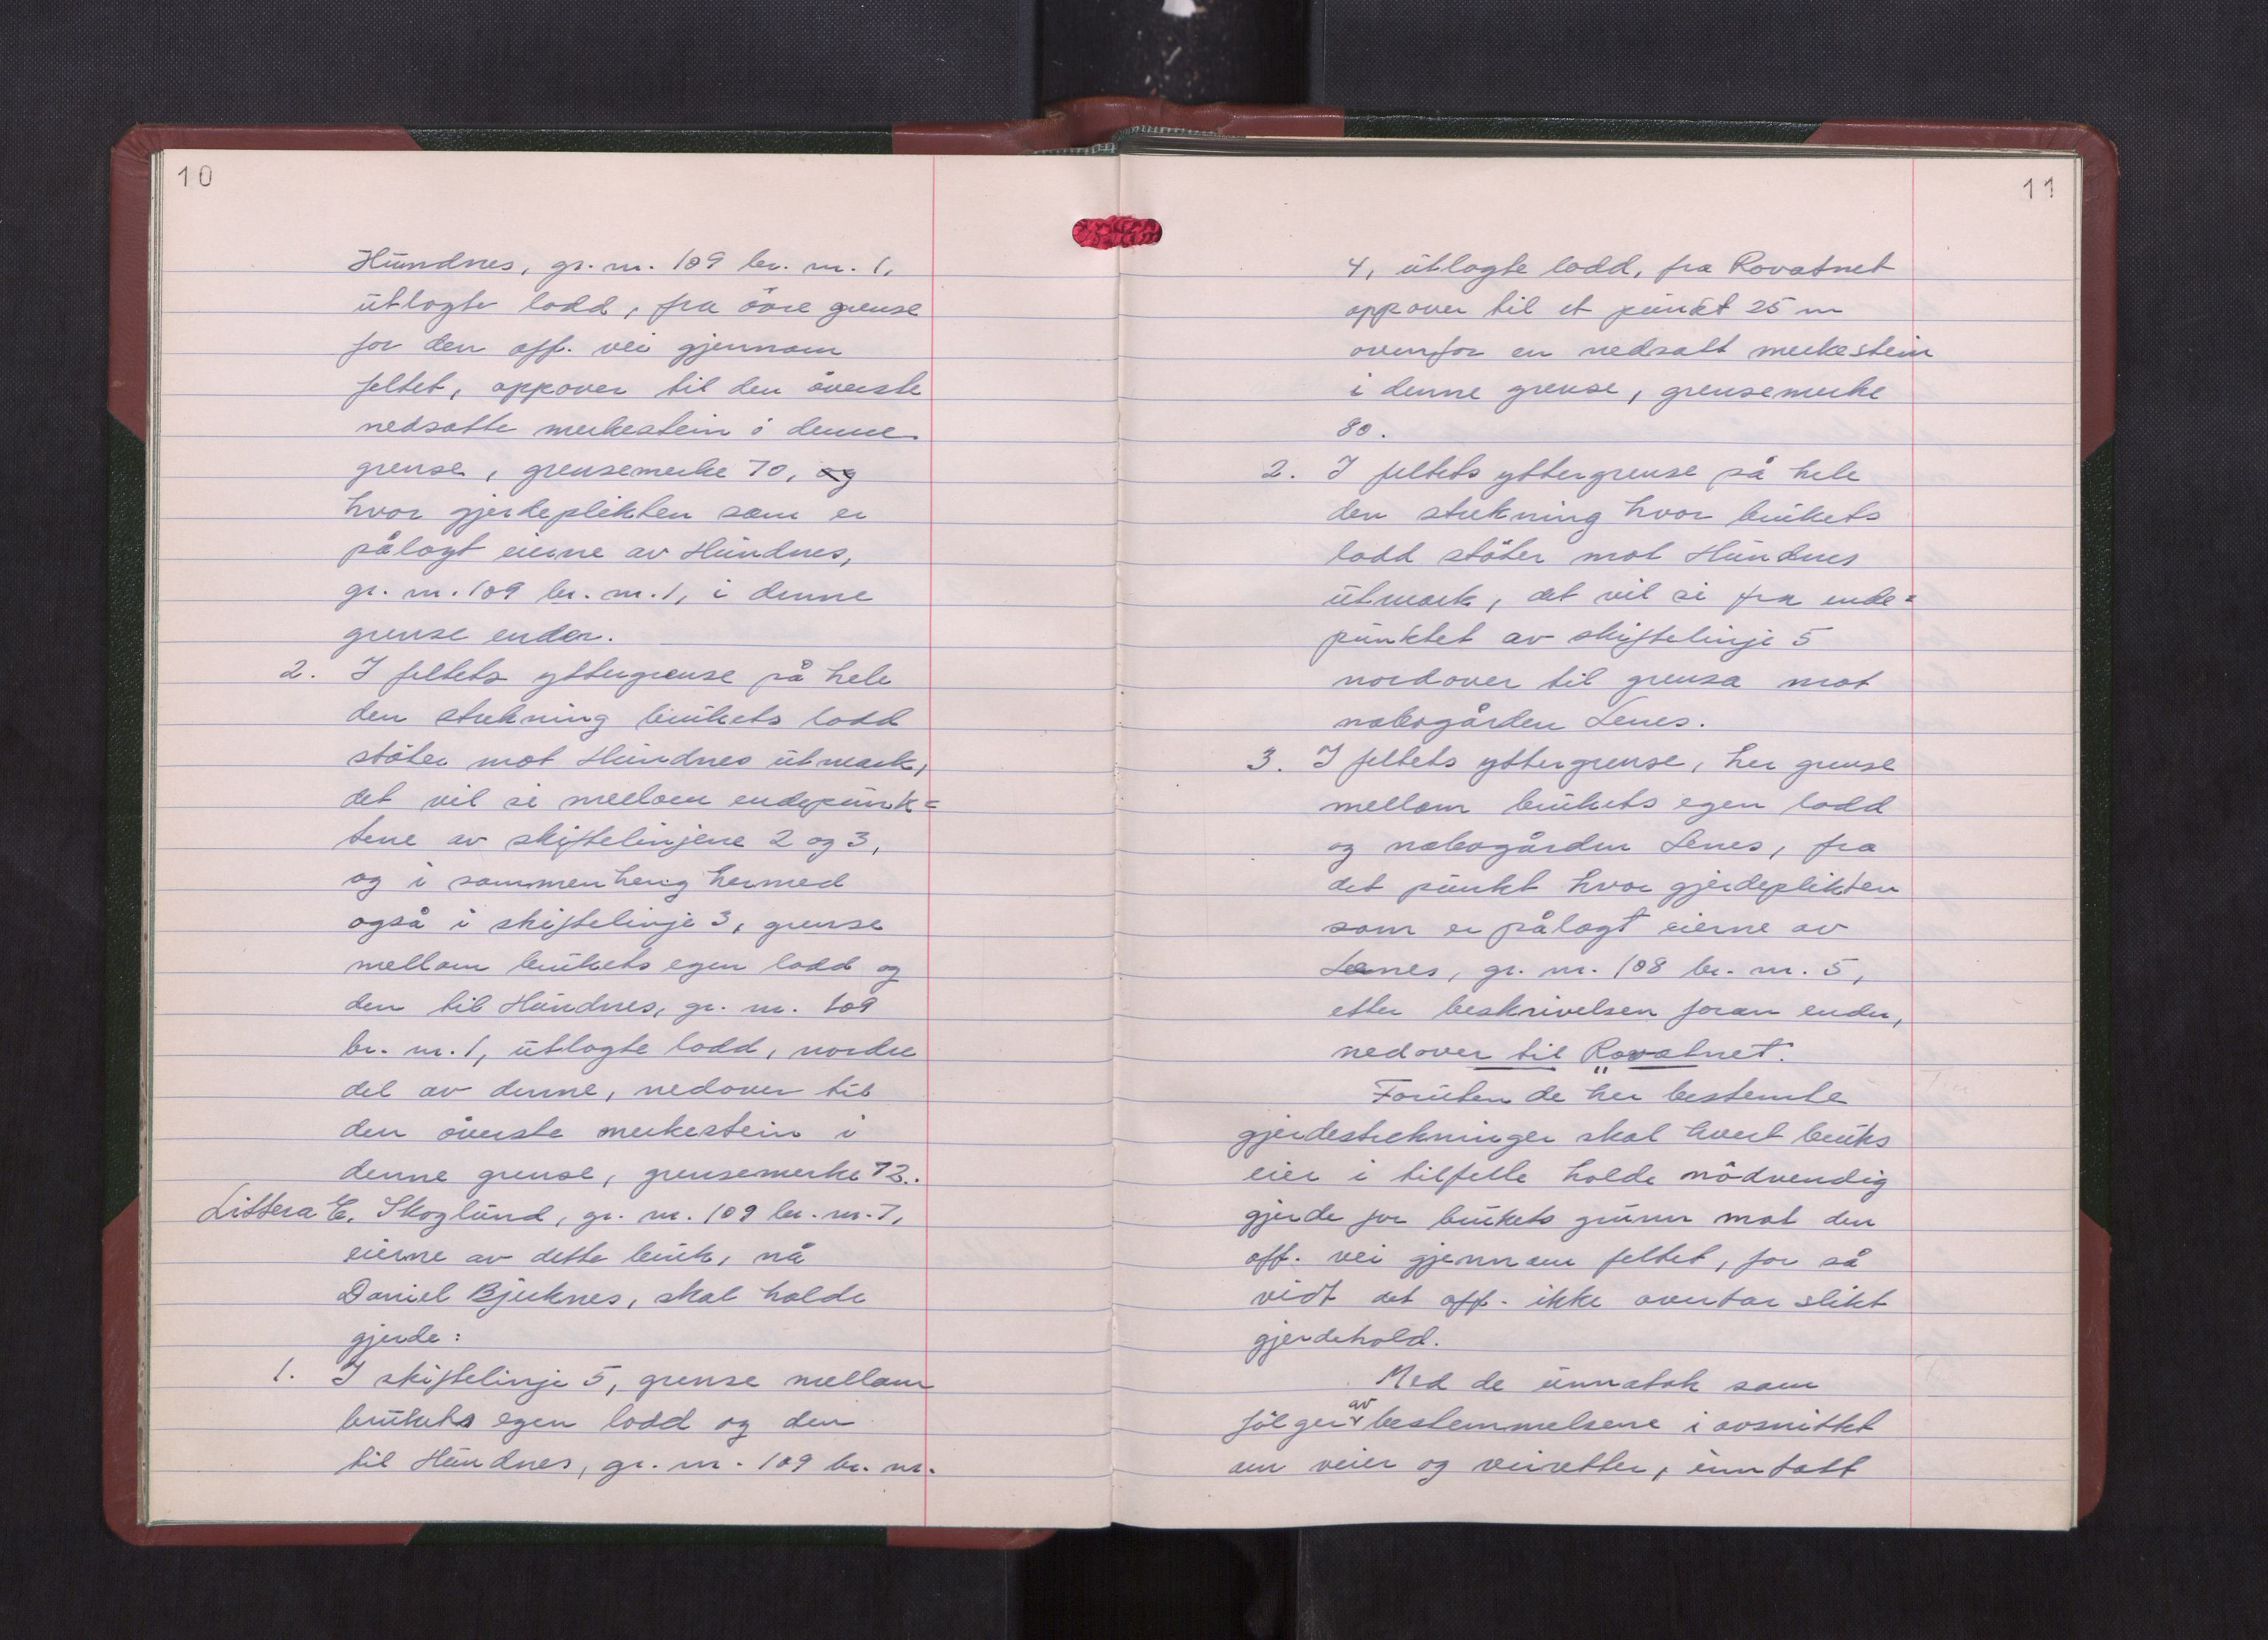 10
Hundnes, gr. nr. 109 br. nr. 1,
utlagte lodd, fra övre grense
for den off. vei gjennom
feltet, oppover til den överste
nedsatte merkestein i denne
grense, grensemerke 70, og
hvor gjerdeplikten som er
pålagt eierne av Hundnes,
gr. nr. 109 br. nr. 1, i denne
grense ender.
2. I feltets yttergrense på hele
den strekning brukets lodd
stöter mot Hundnes utmark,
det vil si mellom endepunk=
tene av skiftelinjene 2 og 3,
og i sammenheng hermed
også i skiftelinje 3, grense
mellom brukets egen lodd og
den til Hundnes, gr. nr. 109
br. nr. 1, utlagte lodd, nordre
del av denne, nedover til
den överste merkestein i
denne grense, grensemerke 73.
Littera E. Skoglund, gr. nr. 109 br. nr. 7,
eierne av dette bruk, nå
Daniel Bjerknes, skal holde
gjerde:
1. I skiftelinje 5, grense mellom
brukets egen lodd og den
til Hundnes, gr. nr. 109 br. nr.
11
4, utlagte lodd, fra Rovatnet
oppover til et punkt 25 m
ovenfor en nedsatt merkestein
i denne grense, grensemerke
80.
2. I feltets yttergrense på hele
den strekning hvor brukets
lodd stöter mot Hundnes
utmark, det vil si fra ende=
punktet av skiftelinje 5
nordover til grensa mot
nabogården Lenes.
3. I feltets yttergrense, her grense
mellom brukets egen lodd
og nabogården Lenes, fra
det punkt hvor gjerdeplikten
som er pålagt eierne av
Lenes, gr. nr. 108 br. nr. 5,
etter beskrivelsen foran ender,
nedover til Rovatnet.
Foruten de her bestemte
gjerdestrekninger skal hvert bruks
eier i tilfelle holde nödvendig
gjerde for brukets grunn mot den
off. vei gjennom feltet, for så
vidt det off. ikke overtar slikt
gjerdehold.
Med de unnatak som
fölger av bestemmelsene i avsnittet
om veier og veiretter, inntatt